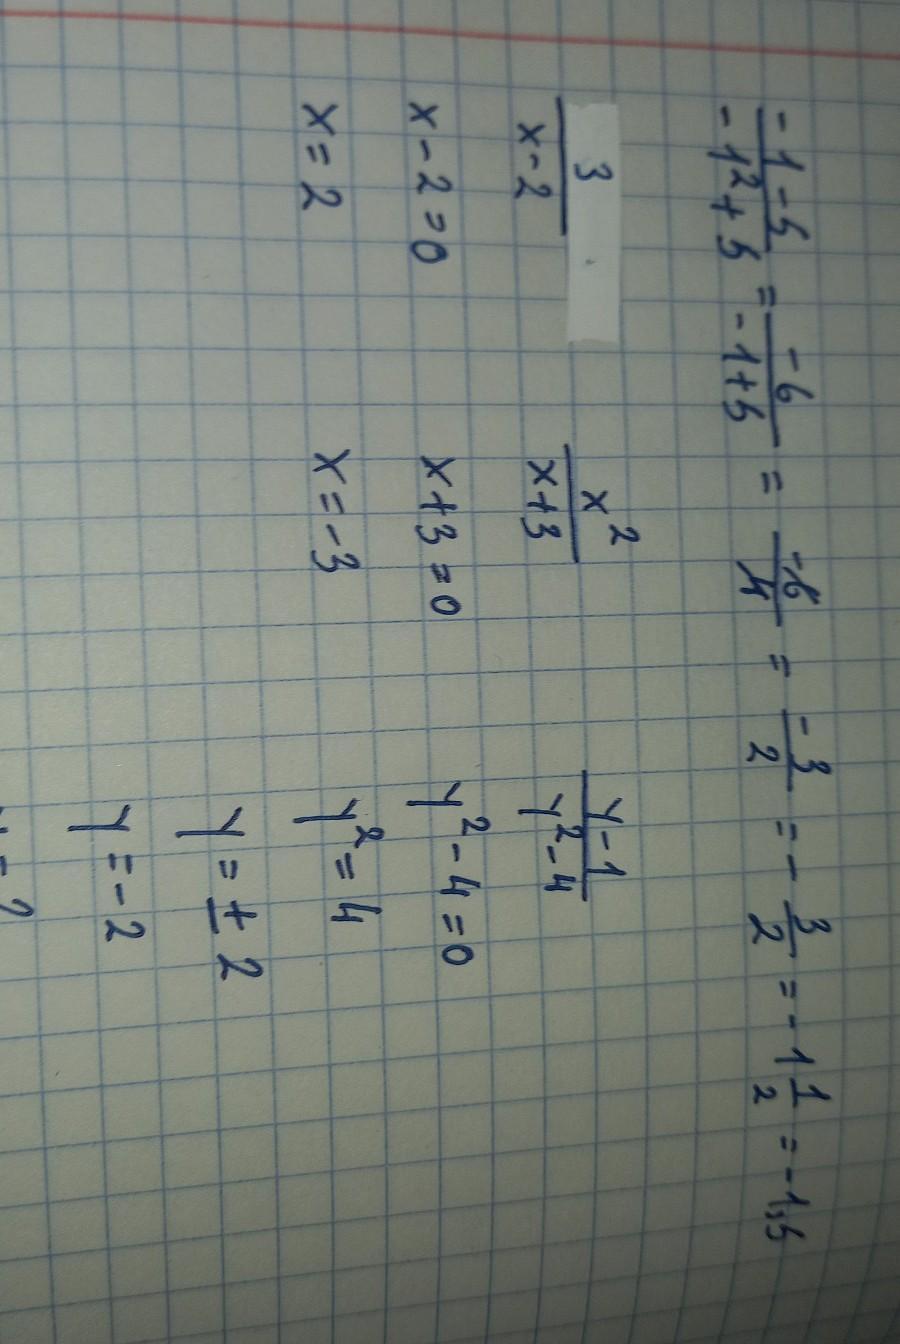 (-1-5)/(-1²+5) = -6/(-1+5) = -6/4 = -3/2 = -3/2 = -1 1/2 = -1,5
3/(x-2)   x²/(x+3)   (y-1)/(y²-4)
x-2=0   x+3=0   y²-4=0
x=2   x=-3   y²=4
y=±2
y=-2